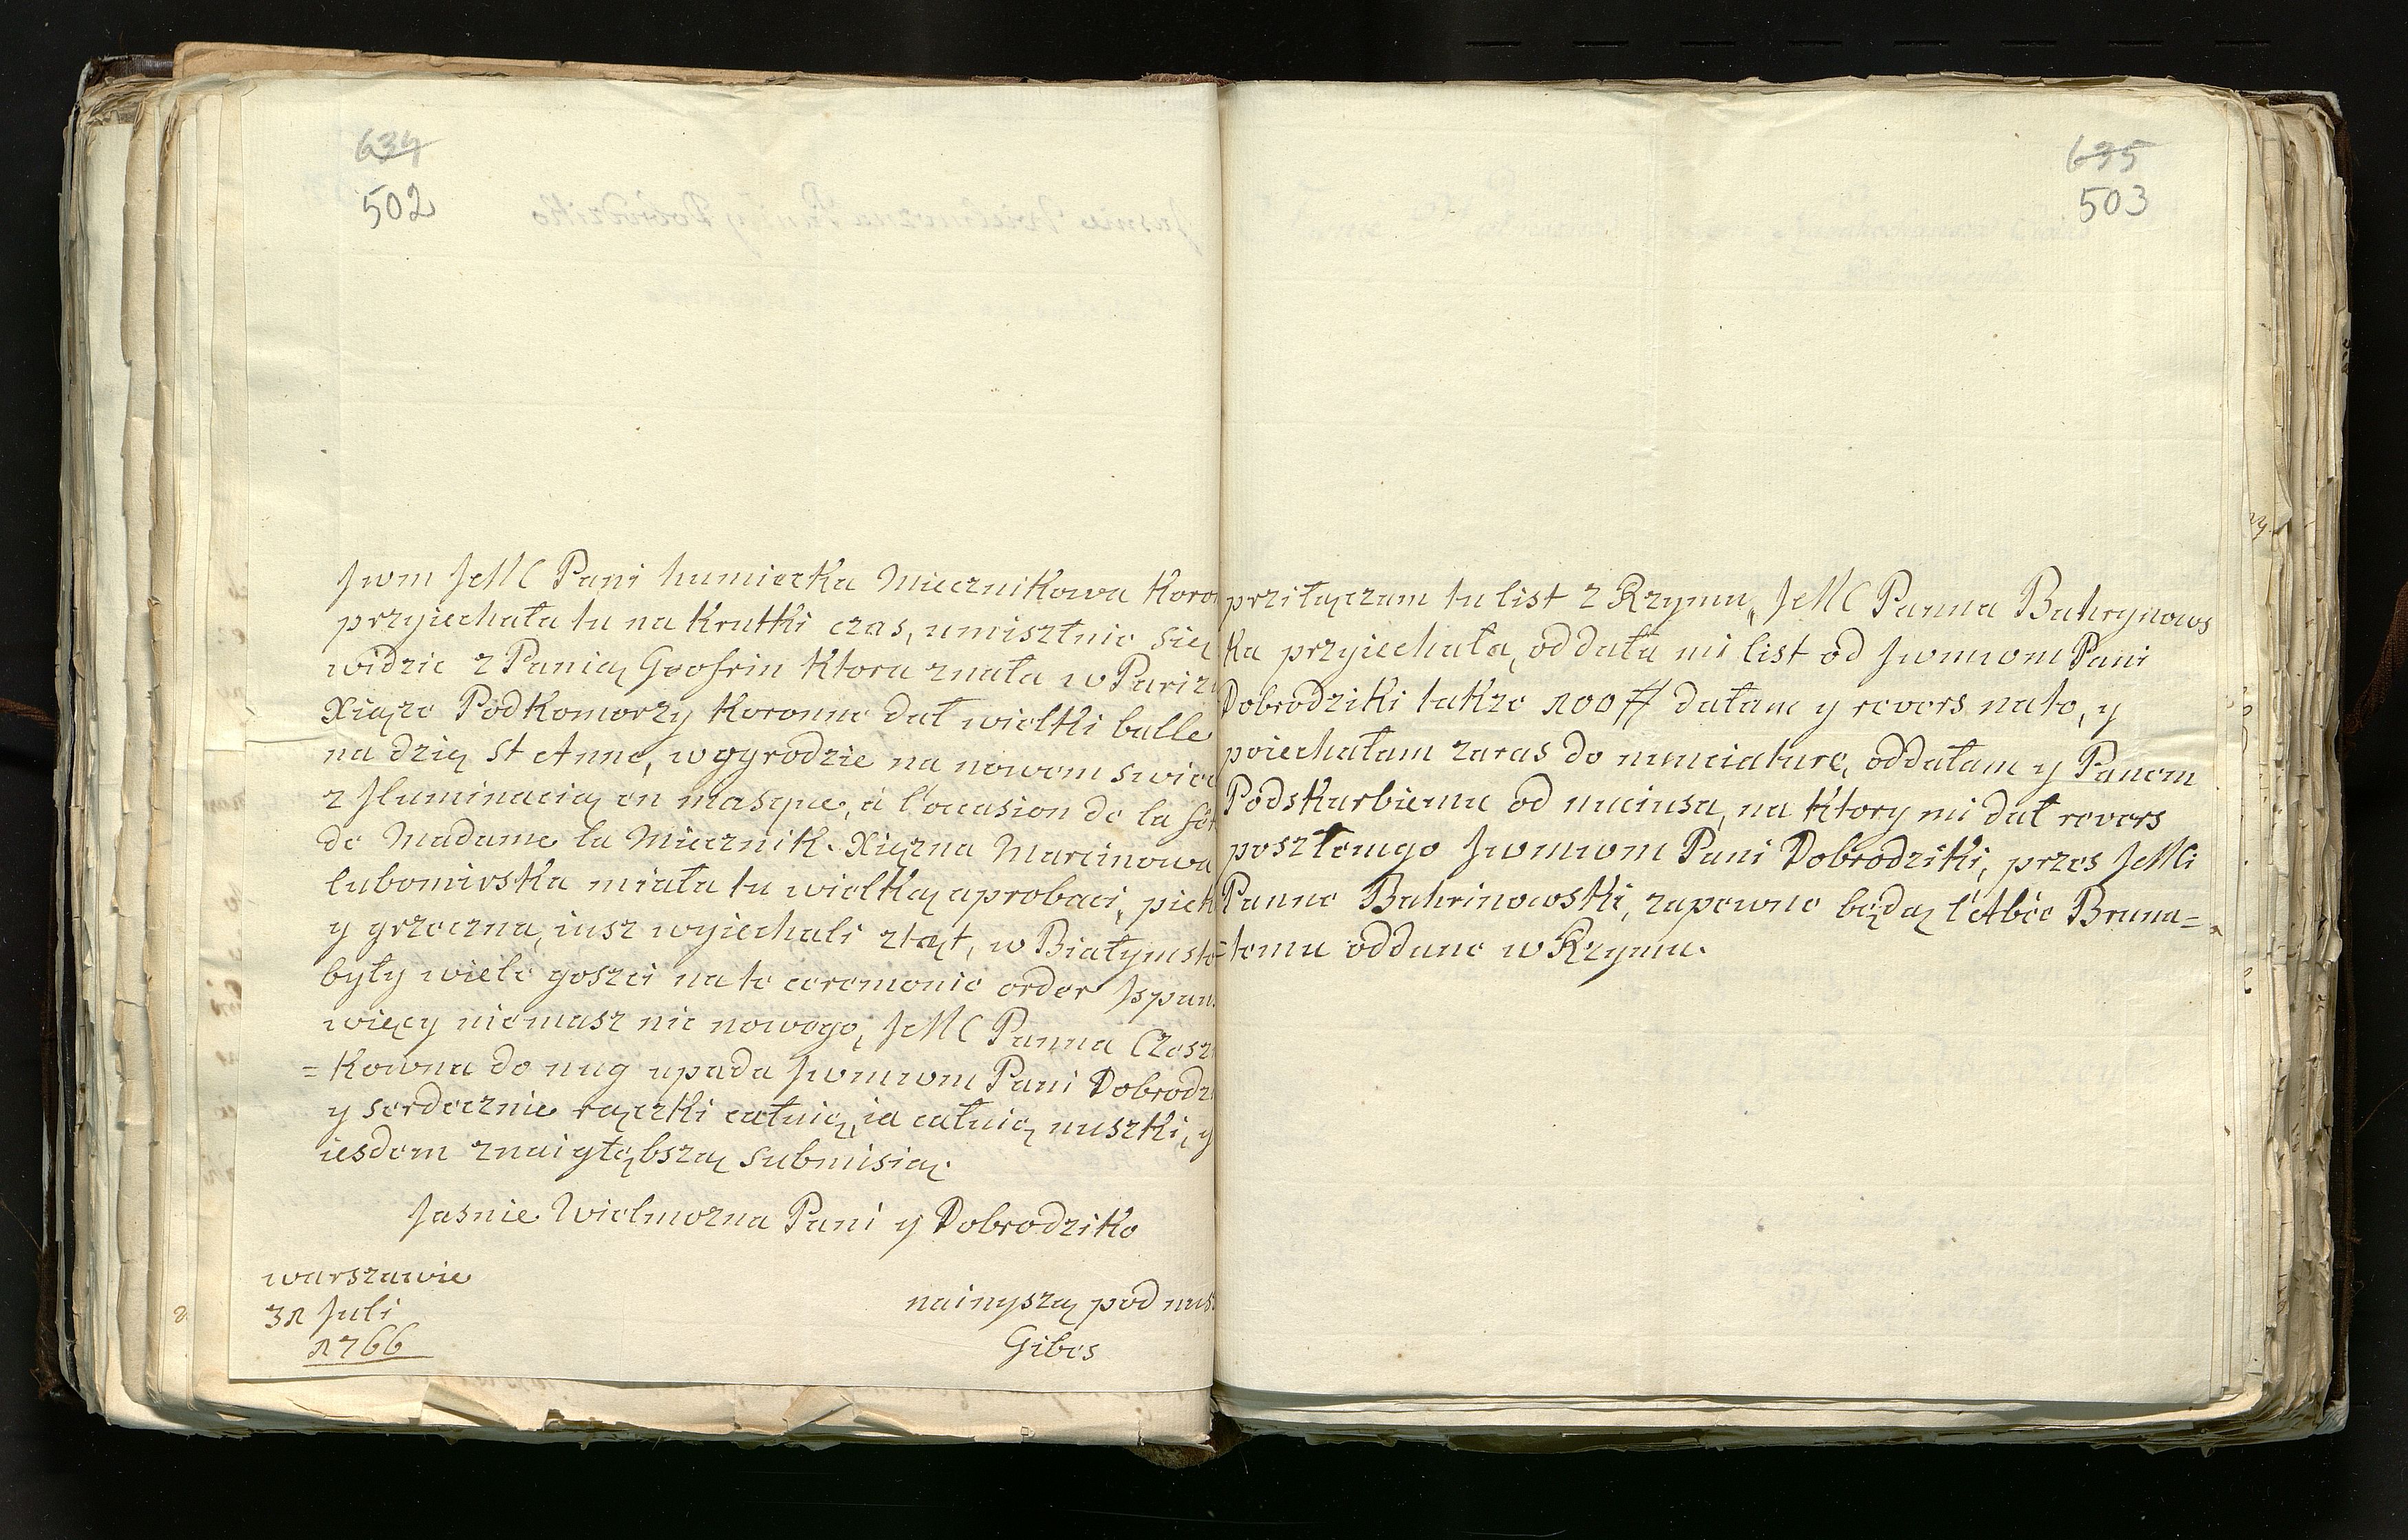 634
502
Jwm JeMC Pani humiecka Miecznikowa Koro
przyiechała tu na Krutki czas, umisztnie się
widzic z Panią Geofrin Ktora znała w Pariz
Xiąze Podkomorzy Koronne dał wielki balle
na dzię st Anne, w ogrodzie na nowem swiec
z Jluminacią en masque, á l'occasion de la fét
de Madame la Miecznik. Xięzna Marcinowa
lubomirska miała tu wielką aprobaci, piek
y grzeczna, iusz wyiechali ztąt, w Białymsto
były wiele goszci na te ceremonie order Jspan
więcy niemasz nic nowego, JeMC Panna Czesz
= Kowna do nug upada Jwmwm Pani Dobrodz
y serdecznie rączki całuię, ia całuię nuszki, y
iesdem znaigłębszą submisią.
Jasnie Wielmozna Pani y Dobrodziko
warszawie
31 Juli
1766
nainyszą pod nus
Gibes
635
503
prziłączam tu list z Rzymu, JeMC Panna Bukrynows
Ka przyiechała, oddała mi list od Jwmwom Pani
Dobrodziki takze 100 # dałam y revers nato, y
poiechałam zaras do nunciature, oddałam y Panem
Podskarbiemu od nuciusa, na Ktory mi dał revers
poszłemgo Jwmwom Pani Dobrodziki, przes JeMCi
Panne Bukrinowski, zapewne będą l'Abée Bruna=
temu oddane w Rzymu.